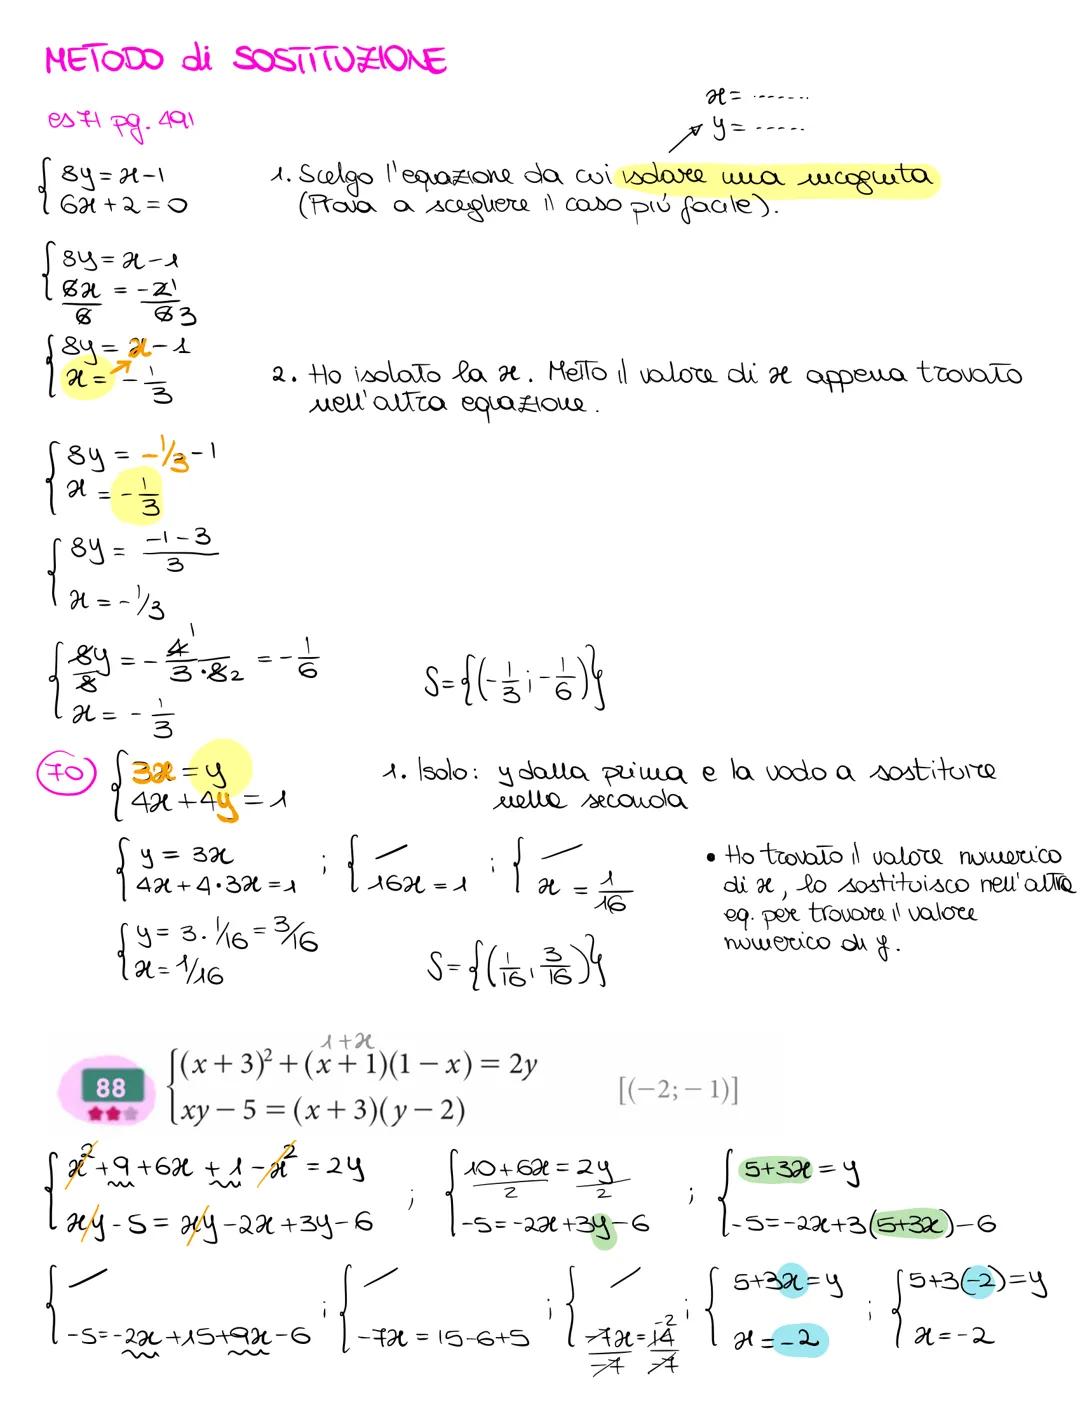 METODO di SOSTITUZIONE
x = ......
es 71 pg. 491
y = .....
{ 8y = x-1
{ 6x+2 = 0
1. Scelgo l'equazione da cui isolare una incognita
(Prova a scegliere il caso più facile).
{ 8y = x-1
{ 6x/6 = -2¹/6 3
{ 8y = x-1
{ x = -1/3
2. Ho isolato la x. Metto il valore di x appena trovato
nell'altra equazione.
{ 8y = -1/3-1
{ x = -1/3
{ 8y = (-1-3)/3
{ x = -1/3
{ 8y/8 = -4¹/(3·8 2) = -1/6
{ x = -1/3
S={(-1/3; -1/6)}
70) { 3x = y
{ 4x+4y = 1
1. Isolo: y dalla prima e la vado a sostituire
nella seconda
{ y = 3x
{ 4x+4·3x = 1
; { —
{ 16x = 1
; { —
{ x = 1/16
• Ho trovato il valore numerico
di x, lo sostituisco nell'altra
eq. per trovare il valore
numerico di y.
{ y = 3·1/16 = 3/16
{ x = 1/16
S={(1/16, 3/16)}
1+x
88 { (x+3)²+(x+1)(1−x)=2y
{ xy−5=(x+3)(y−2)
[(−2;−1)]
{ x²+9+6x+1-x² = 2y
{ xy-5 = xy-2x+3y-6
; { (10+6x)/2 = 2y/2
{ -5 = -2x+3y-6
; { 5+3x = y
{ -5 = -2x+3(5+3x)-6
{ —
{ -5 = -2x+15+9x-6
; { —
{ -7x = 15-6+5
; { —
{ -7x/-7 = 14/-7 -2
; { 5+3x = y
{ x = -2
; { 5+3(-2) = y
{ x = -2